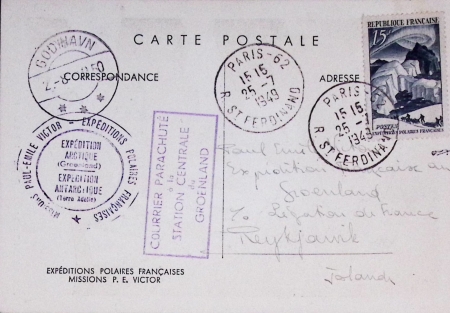 CARTE POSTALE
CORRESPONDANCE
ADRESSE
GODHAVN
50
PARIS-62
15 15
25-7
1949
R. ST FERDINAND
PARIS-62
15 15
25-
194
R. ST FERDINAND
REPUBLIQUE FRANÇAISE
15F
POSTES
EXPEDITIONS POLAIRES FRANÇAISES
EXPÉDITIONS POLAIRES FRANÇAISES
MISSIONS PAUL-EMILE VICTOR
EXPÉDITION
ARCTIQUE
(Groenland)
EXPÉDITION
ANTARCTIQUE
(Terre Adélie)
COURRIER PARACHUTÉ
à la
STATION CENTRALE
du
GROENLAND
Paul
Expédition française au
Groenland
c/o Légation de France
Reykjavik
Islande
EXPÉDITIONS POLAIRES FRANÇAISES
MISSIONS P. E. VICTOR